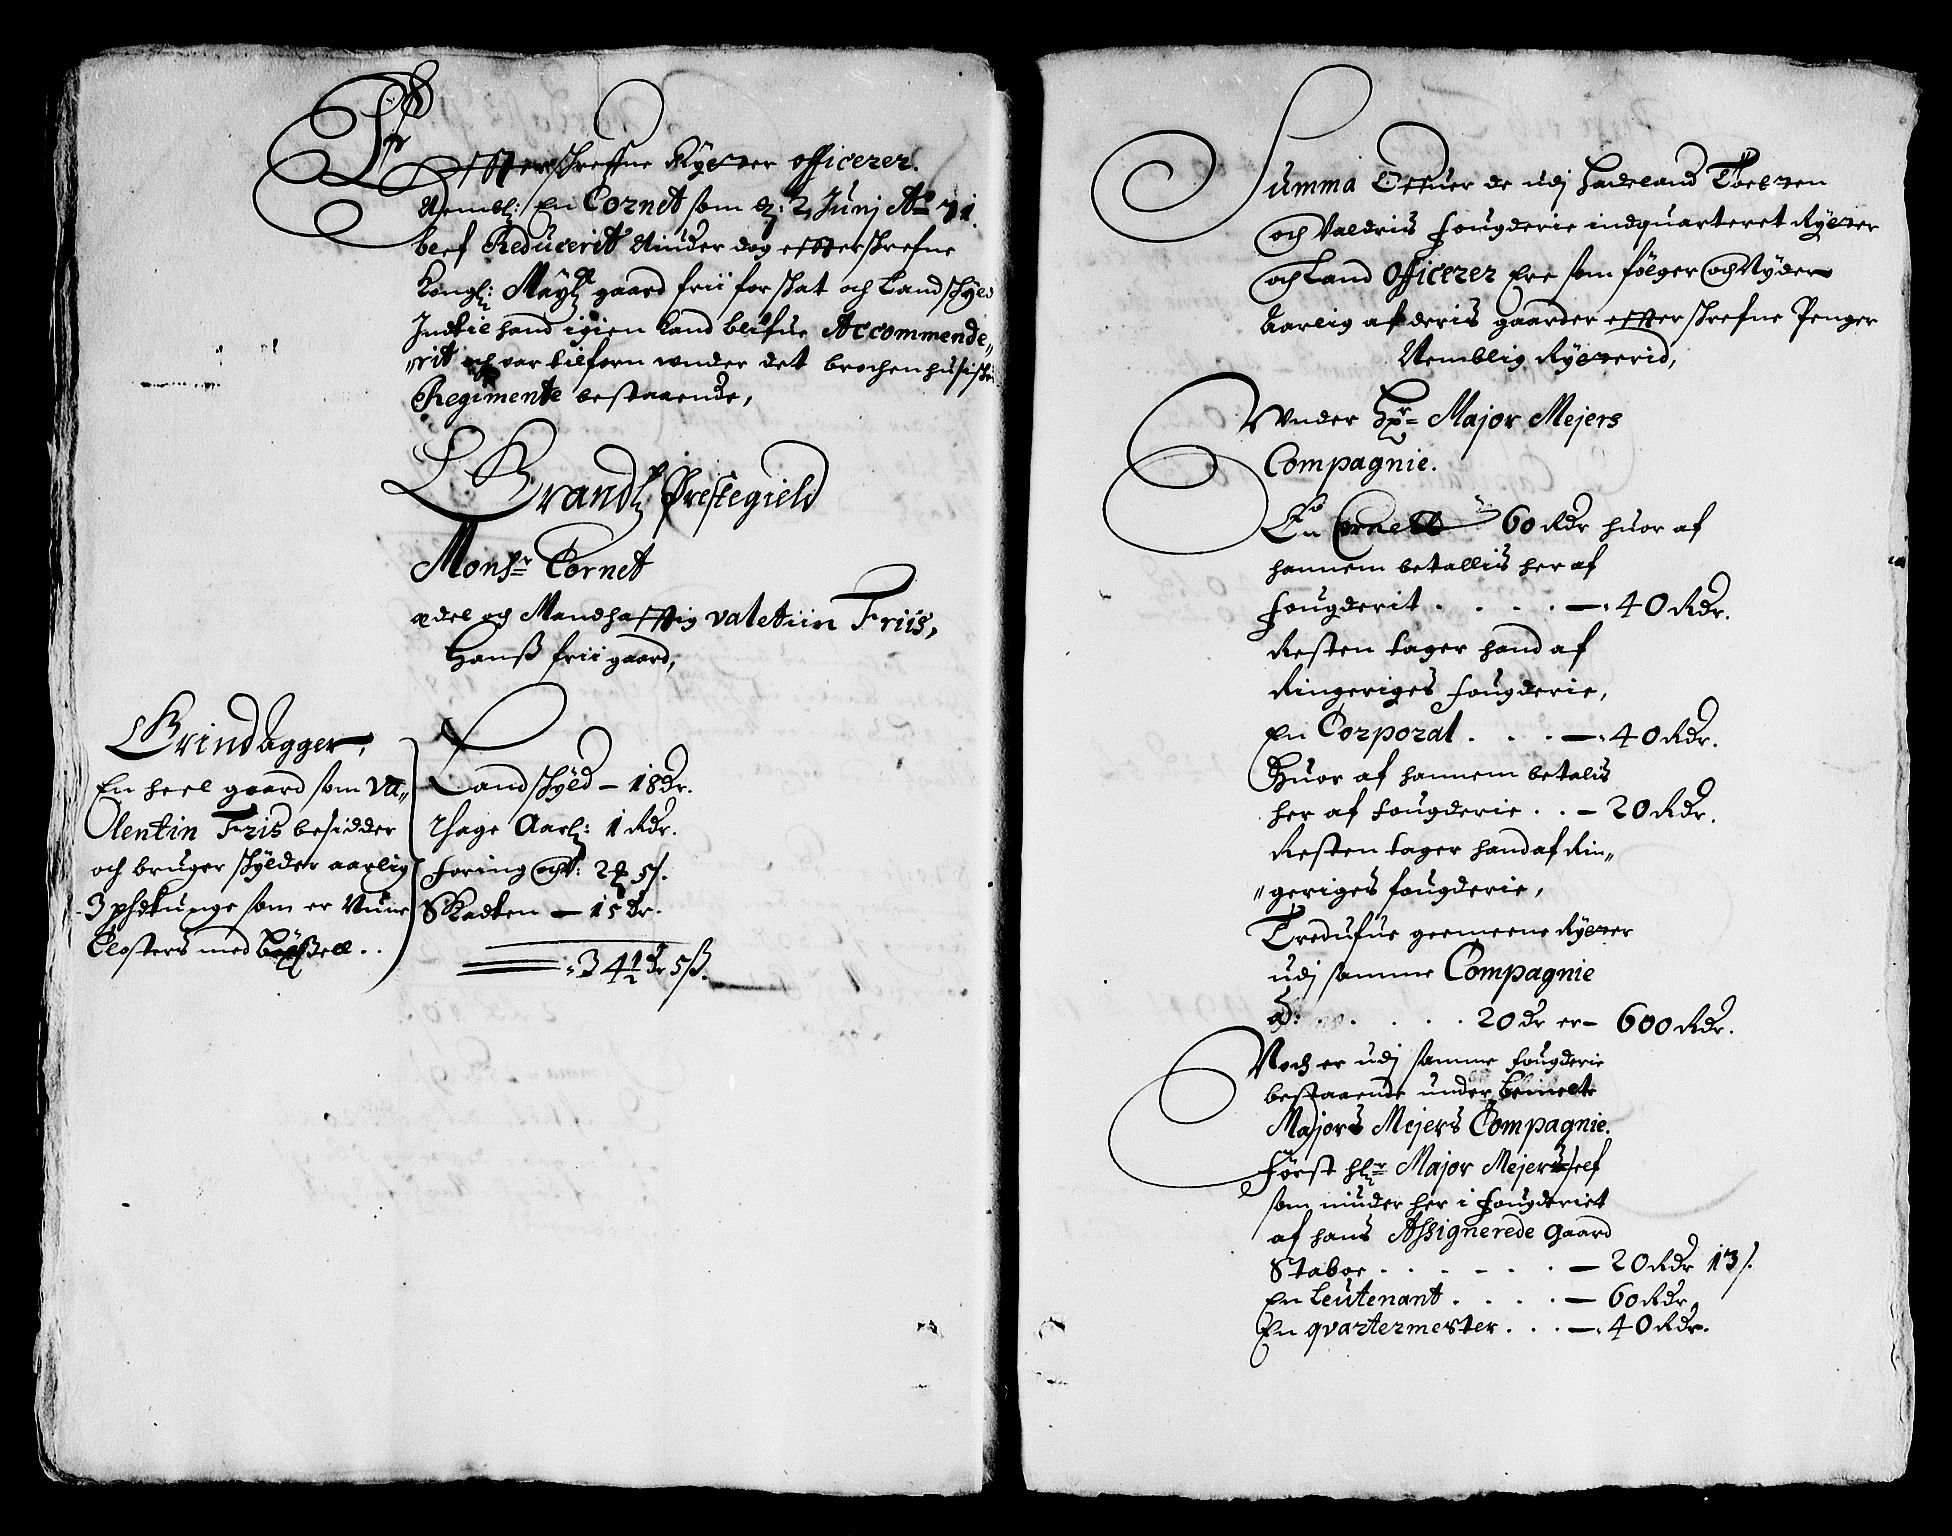 Effterschreffne Rytter officerer.
Nembl: En Cornet som d: 2 Junj Ao 71.
blef Reducerit Niuder dog effterschrefne
Kongl: Mayts gaard frii for skat och Landschyld
Indtil hand igien kand blifue Accommende„
„rit och var tilforn wnder det brochenhusiske
Regimente bestaaende,
Brandz Prestegield
Monsr Cornet
ædel och Mandhafftig valetiin Friis,
Hanß frii gaard,
Grindagger,
En heel gaard som va„
„lentin Friis besidder
och bruger skylder aarlig
3 pset
som er Nune
Closters med bøxell..
Landschyld — 18 dr.
Thage Aarl: 1 Rdr.
Foring och: 5 s.
Skadten — 15 dr.
34½ dr 5 ß.
Summa Offuer de udj Hadeland Toetten
och Valdris fougderie indquarteret Rytter
och Land Officerer Ere som følger och Nyder
Aarlig af deris gaarder effterschrefne Penger
Nemblig Rytterid,
Vnder Hr Major Mejers
Compagnie.
En Cornett 60 Rdr huor af
hannem betallis her af
fougderit . . . . — 40 Rdr.
Resten tager hand af
Ringeriges fougderie,
En Corporal . . . . — 40 Rdr.
Huor af hannem betalis
her af fougderie . . — 20 Rdr.
Resten tager hand af Rin„
„geriges fougderie,
Tredufue geemeene Rytter
udj samme Compagnie
a: . . . . . . 20 dr er — 600 Rdr.
Noch er udj samme fougderie
bestaaende under bemelte
Majors Mejers Compagnie.
Først hlr Major Mejer self
som niuder her i fougderiet
af hans Assignerede Gaard
Staboe . . . . . . — 20 Rdr 13 s.
En Leutenant . . . . — 60 Rdr.
En qvartermester . . . — 40 Rdr.